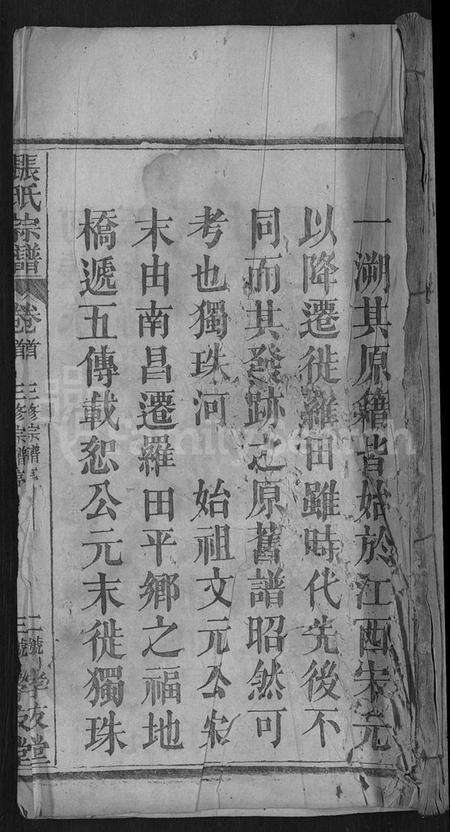 一溯其原籍皆始於江西宋元
以降遷徙羅田雖時代先後不
同而其發跡之原舊譜昭然可
考也獨珠河 始祖文元公宋
末由南昌遷羅田平鄉之福地
橋遞五傳載恕公元末徙獨珠
張氏宗譜 卷首 三修宗譜
FamilySearch